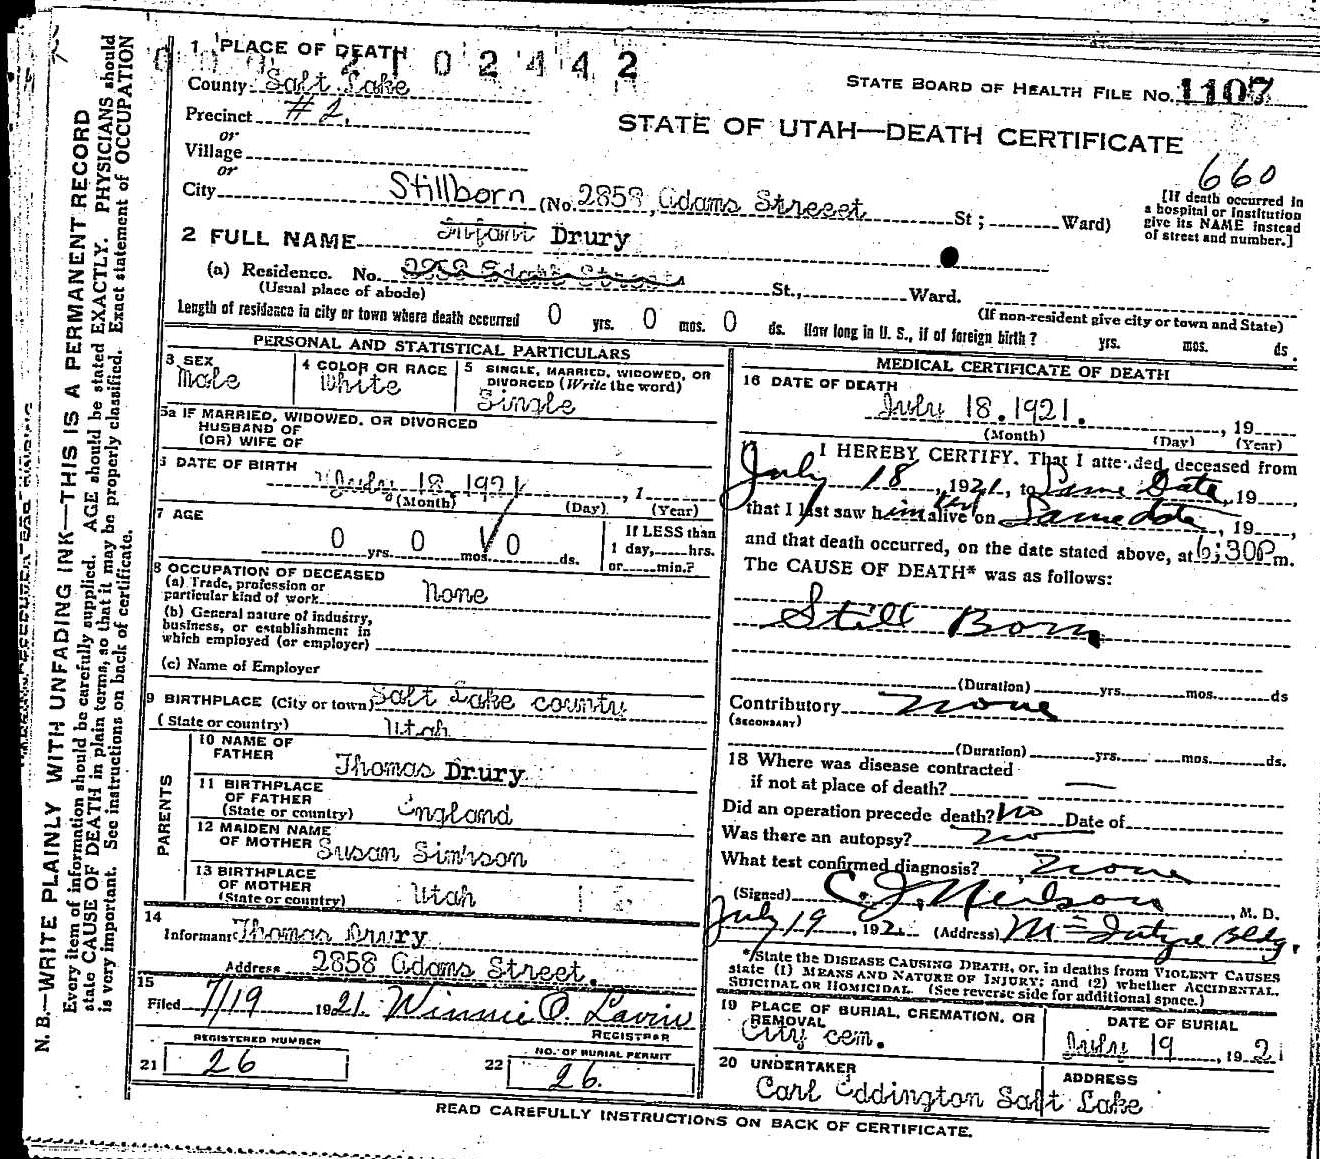 1 PLACE OF DEATH
2102442
County Salt Lake
STATE BOARD OF HEALTH FILE No. 1107
Precinct #2.
STATE OF UTAH—DEATH CERTIFICATE
or
Village
or
660
City Stillborn (No. 2858, Adams Streeet St; Ward)
[If death occurred in a hospital or institution give its NAME instead of street and number.]
2 FULL NAME Infant Drury
(a) Residence. No. 2858 Adams Street St., Ward.
(Usual place of abode)
(If non-resident give city or town and State)
Length of residence in city or town where death occurred 0 yrs. 0 mos. 0 ds. How long in U. S., if of foreign birth? yrs. mos. ds.
PERSONAL AND STATISTICAL PARTICULARS
3 SEX
Male
4 COLOR OR RACE
White
5 SINGLE, MARRIED, WIDOWED, OR DIVORCED (Write the word)
Single
5a IF MARRIED, WIDOWED, OR DIVORCED
HUSBAND OF
(OR) WIFE OF
6 DATE OF BIRTH
July 18 1921, 1
(Month) (Day) (Year)
7 AGE
0 yrs. 0 mos. 0 ds.
If LESS than
1 day, hrs.
or min.?
8 OCCUPATION OF DECEASED
(a) Trade, profession or
particular kind of work None
(b) General nature of industry,
business, or establishment in
which employed (or employer)
(c) Name of Employer
9 BIRTHPLACE (City or town) Salt Lake county
(State or country) Utah
PARENTS
10 NAME OF
FATHER Thomas Drury
11 BIRTHPLACE
OF FATHER
(State or country) England
12 MAIDEN NAME
OF MOTHER Susan Simpson
13 BIRTHPLACE
OF MOTHER
(State or country) Utah
14
Informant Thomas Drury
Address 2858 Adams Street.
15
Filed 7/19 1921. Winnie O. Lavin
REGISTRAR
REGISTERED NUMBER
21 26
NO. OF BURIAL PERMIT
22 26.
MEDICAL CERTIFICATE OF DEATH
16 DATE OF DEATH
July 18. 1921. , 19
(Month) (Day) (Year)
I HEREBY CERTIFY. That I attended deceased from
July 18, 1921, to Same Date, 19
that I last saw him alive on Same date, 19
and that death occurred, on the date stated above, at 6:30P m.
The CAUSE OF DEATH* was as follows:
Still Born
(Duration) yrs. mos. ds
Contributory none
(SECONDARY)
(Duration) yrs. mos. ds.
18 Where was disease contracted
if not at place of death? —
Did an operation precede death? No Date of
Was there an autopsy? no
What test confirmed diagnosis? none
(Signed) C. J. Neilson, M. D.
July 19, 192 (Address) Mc Intyre Bldg.
*State the DISEASE CAUSING DEATH, or, in deaths from VIOLENT CAUSES
state (1) MEANS AND NATURE OF INJURY; and (2) whether ACCIDENTAL,
SUICIDAL OR HOMICIDAL. (See reverse side for additional space.)
19 PLACE OF BURIAL, CREMATION, OR
REMOVAL
City cem.
DATE OF BURIAL
July 19, 1921
20 UNDERTAKER
Carl Eddington
ADDRESS
Salt Lake
READ CAREFULLY INSTRUCTIONS ON BACK OF CERTIFICATE.
N. B.—WRITE PLAINLY WITH UNFADING INK—THIS IS A PERMANENT RECORD
Every item of information should be carefully supplied. AGE should be stated EXACTLY. PHYSICIANS should
state CAUSE OF DEATH in plain terms, so that it may be properly classified. Exact statement of OCCUPATION
is very important. See instructions on back of certificate.